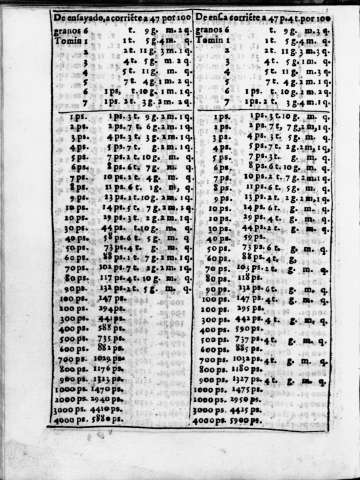 De ensayado, a corriẽte a 47 por 100
granos 6 t. 9 g. m. 2 q.
Tomin 1 1 t. 5 g. 4 m. q.
2 2 t. 11 g. 3 m. 1 q.
3 4 t. 5 g. m. 2 q.
4 5 t. 11 g. m. q.
5 7 t. 4 g. m. 2 q.
6 1 ps. t. 10 g. m. 2 q.
7 1 ps. 2 t. 3 g. 2 m. 2 q.
1 ps. 1 ps. 3 t. 9 g. 2 m. 1 q.
2 ps. 2 ps. 7 t. 6 g. 2 m. 1 q.
3 ps. 4 ps. 3 t. 3 g. 1 m. q.
4 ps. 5 ps. 7 t. g. 2 m. 1 q.
5 ps. 7 ps. 2 t. 10 g. m. q.
6 ps. 8 ps. 6 t. 7 g. m. q.
7 ps. 10 ps. 2 t. 4 g. m. 1 q.
8 ps. 11 ps. 6 t. 1 g. m. q.
9 ps. 13 ps. 1 t. 10 g. 2 m. 1 q.
10 ps. 14 ps. 5 t. 7 g. 2 m. 1 q.
20 ps. 29 ps. 3 t. 2 g. 2 m. 1 q.
30 ps. 44 ps. t. 10 g. m. q.
40 ps. 58 ps. 6 t. 5 g. m. q.
50 ps. 73 ps. 4 t. g. m. q.
60 ps. 88 ps. 1 t. 7 g. 2 m. 1 q.
70 ps. 102 ps. 7 t. 2 g. 2 m. 1 q.
80 ps. 117 ps. 4 t. 10 g. m. q.
90 ps. 132 ps. 2 t. 5 g. m. q.
100 ps. 147 ps.
200 ps. 294 ps.
300 ps. 441 ps.
400 ps. 588 ps.
500 ps. 735 ps.
600 ps. 882 ps.
700 ps. 1029 ps.
800 ps. 1176 ps.
900 ps. 1323 ps.
1000 ps. 1470 ps.
2000 ps. 2940 ps.
3000 ps. 4410 ps.
4000 ps. 5880 ps.
De ensa corriẽte a 47 p. 4 t. por 100
granos 6 t. 9 g. m. 3 q.
Tomin 1 1 t. 5 g. 4 m. q.
2 2 t. 11 g. 3 m. 3 q.
3 4 t. 5 g. 1 m. q.
4 5 t. 11 g. m. 2 q.
5 7 t. 4 g. 2 m. q.
6 1 ps. t. 10 g. m. 2 q.
7 1 ps. 2 t. 3 g. 4 m. 1 q.
1 ps. 1 ps. 3 t. 10 g. m. q.
2 ps. 2 ps. 7 t. 7 g. 2 m. 1 q.
3 ps. 4 ps. 3 t. 5 g. m. q.
4 ps. 5 ps. 7 t. 2 g. 2 m. 1 q.
5 ps. 7 ps. 3 t. g. m. q.
6 ps. 8 ps. 6 t. 10 g. m. q.
7 ps. 10 ps. 2 t. 7 g. 2 m. 1 q.
8 ps. 11 ps. 6 t. 5 g. m. q.
9 ps. 13 ps. 2 t. 2 g. 2 m. 1 q.
10 ps. 14 ps. 6 t. g. m. q.
20 ps. 29 ps. 4 t. g. m. q.
30 ps. 44 ps. 2 t. g. m. q.
40 ps. 59 ps.
50 ps. 73 ps. 6 t. g. m. q.
60 ps. 88 ps. 4 t. g.
70 ps. 103 ps. 2 t. g. m. q.
80 ps. 118 ps.
90 ps. 132 ps. 6 t. g. m. q.
100 ps. 147 ps. 4 t. g. m. q.
200 ps. 295 ps.
300 ps. 442 ps. 4 t. g. m. q.
400 ps. 590 ps.
500 ps. 737 ps. 4 t. g. m. q.
600 ps. 885 ps.
700 ps. 1032 ps. 4 t. g. m. q.
800 ps. 1180 ps.
900 ps. 1327 ps. 4 t. g. m. q.
1000 ps. 1475 ps.
2000 ps. 2950 ps.
3000 ps. 4425 ps.
4000 ps. 5900 ps.